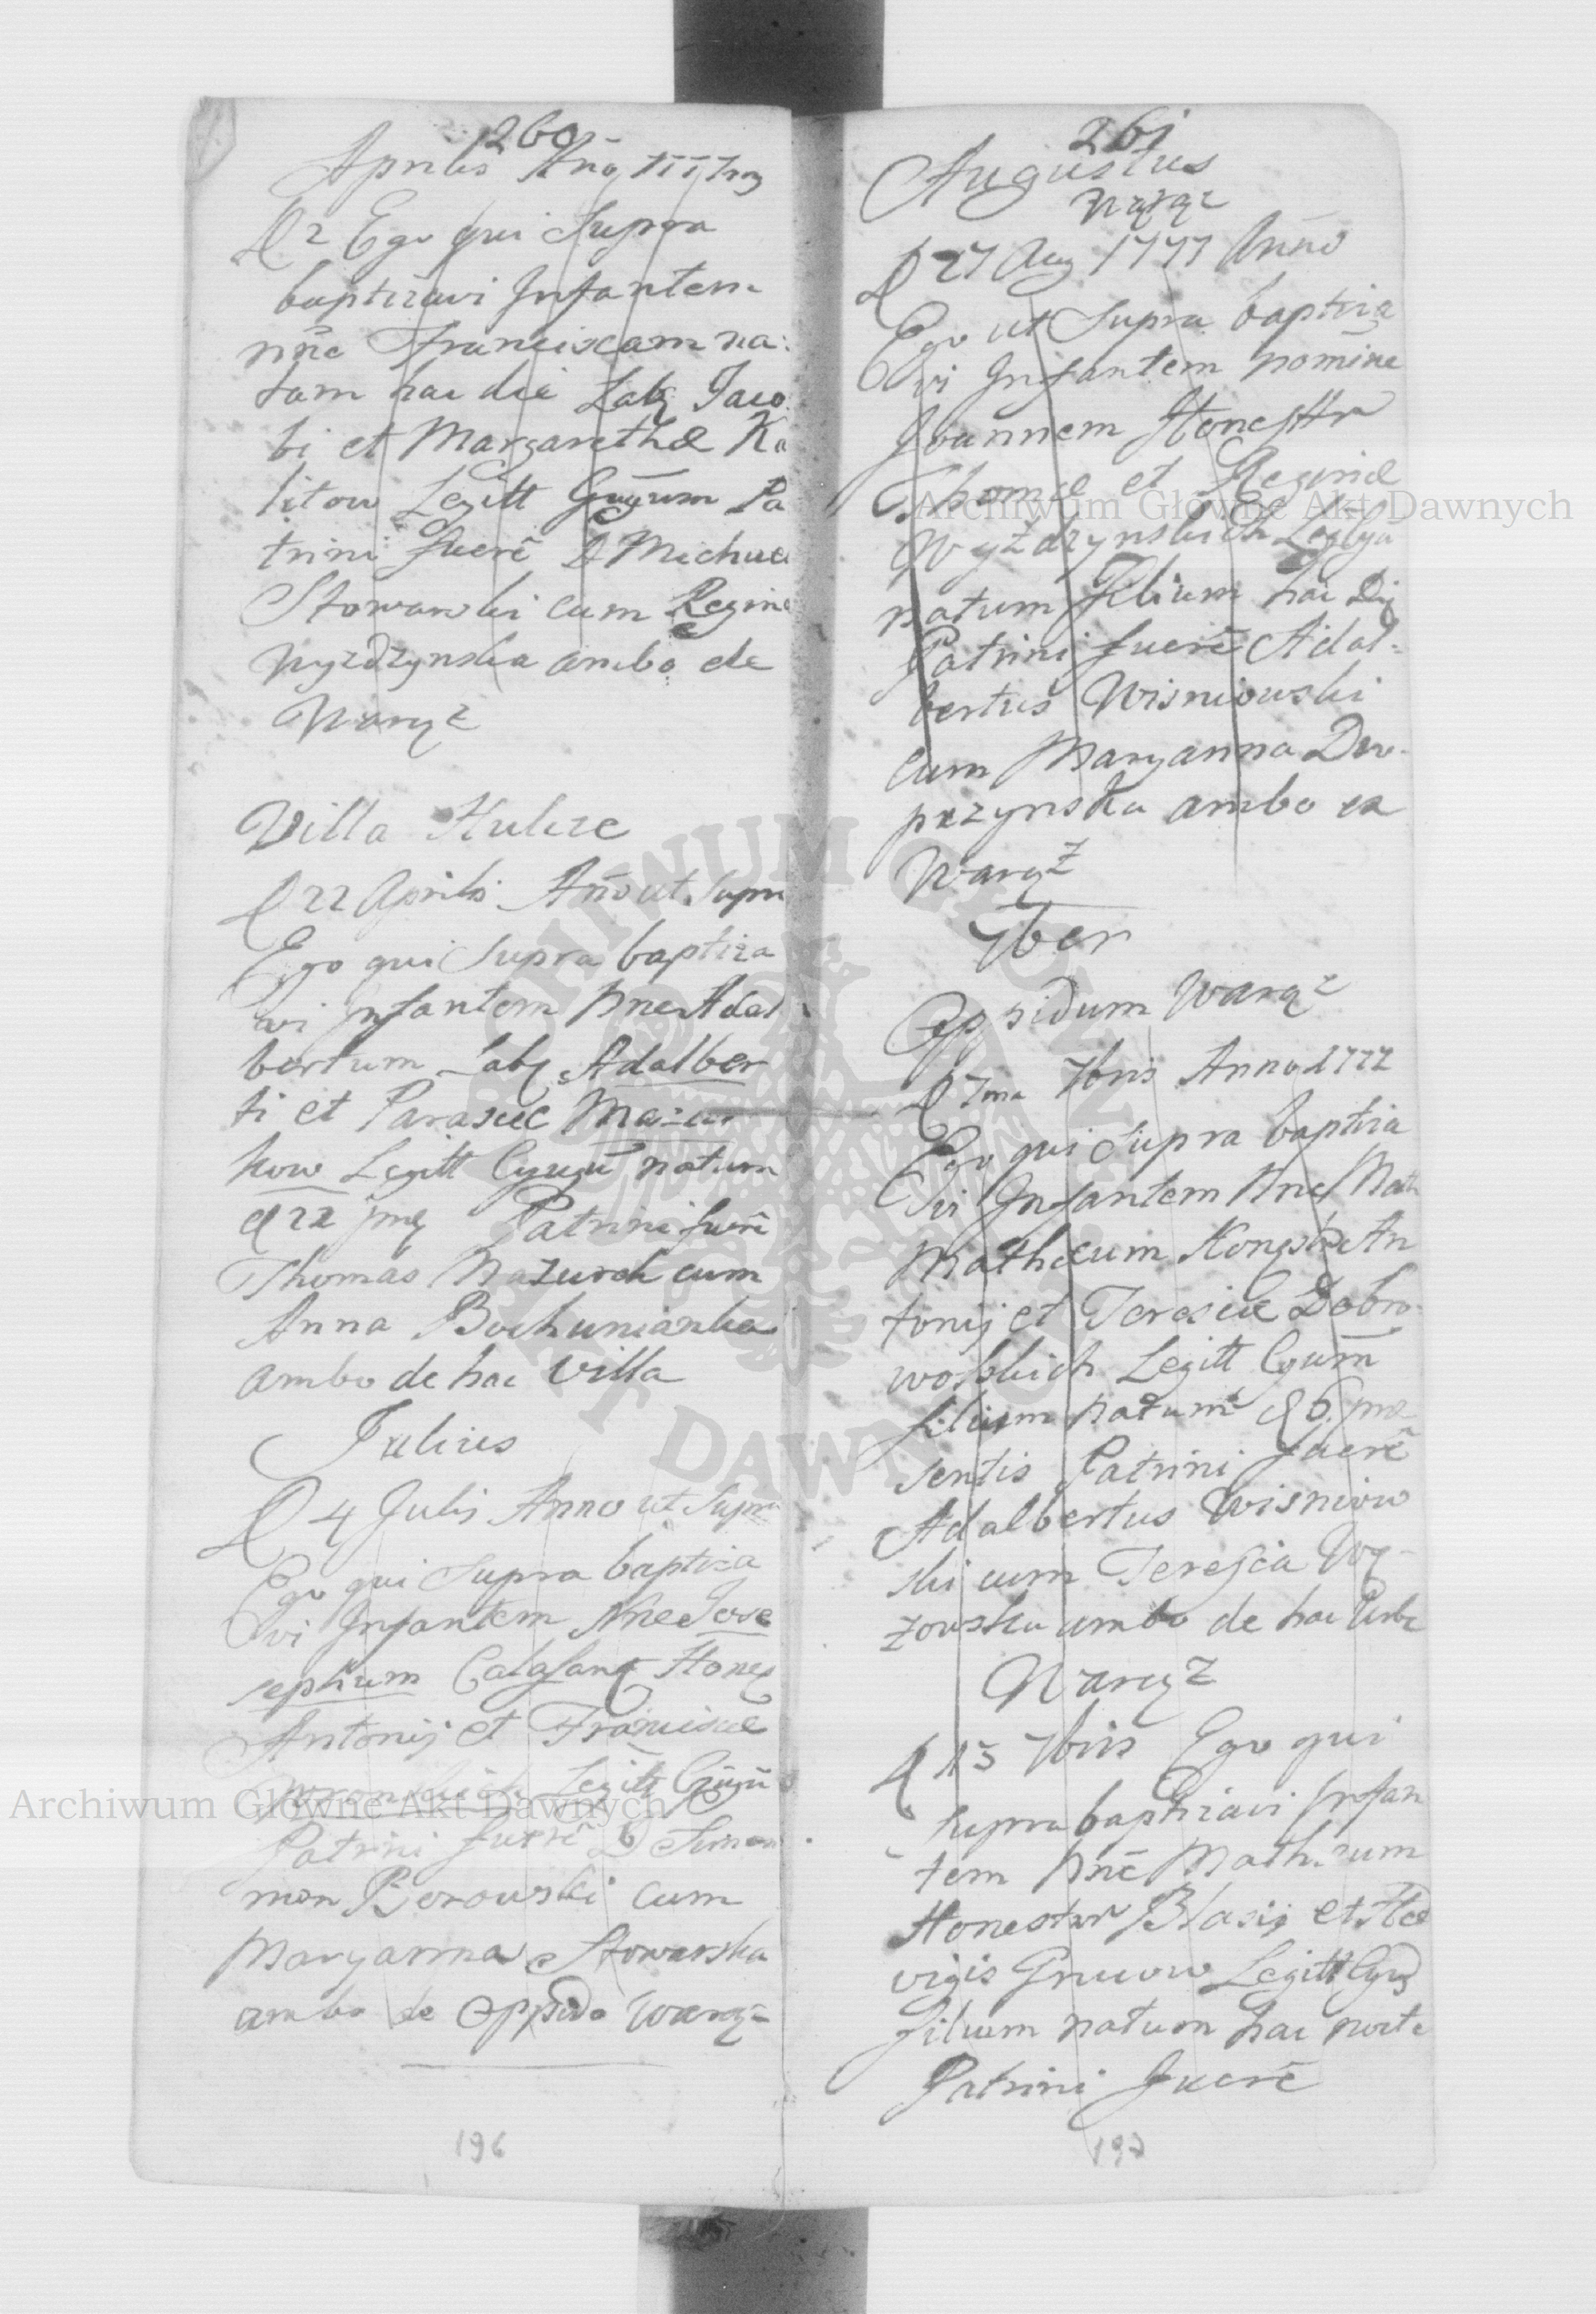 260
Aprilis Año 1777
D 2 Ego qui Supra
baptizavi Infantem
nñe Franciscam na:
tam hac die Lab Jaco
bi et Margarethæ Ka
litow Legitt Gugum Pa
trini fuerẽ D Michael
Stowarski cum Regina
Wyzdzynska ambo de
Waręż
Villa Hulcze
D 22 Aprilis Año ut Supra
Ego qui Supra baptiza
vi Infantem Nne Adal
bertum Lab Adalber
ti et Parascec Mazur
kow Legitt Cgugũ natum
d 22 Patrini fuerẽ
Thomas Mazurek cum
Anna Bochunianka
ambo de hac Villa
Julius
D 4 Julij Anno ut Supra
Ego qui Supra baptiza
vi Infantem Nne Jose
sephum Calasan Hones
Antonij et Franciscæ
Legitt Cgugũ
Patrini fuerẽ D Simon
mon Borowski cum
Maryanna Stowarska
ambo de Oppido Waręż
196
261
Augustus
Waręż
D 27 Aug 1777 Anno
Ego ut Supra baptiza
vi Infantem nomine
Joannem Honestor
Thomæ et Reginæ
Wyżdzynskich
natum Filium hac Die
Patrini fuerẽ Adal-
bertus Wisniowski
cum Maryanna Dro-
przynska ambo ex
Waręż
7ber
Oppidum Waręż
D 7ma 7bris Anno 1777
Ego qui Supra baptiza
vi Infantem Nne Math
Mathæum Honest An
tonij et Teresiæ Dobro-
wolskich Legitt Cgum
filium natum d 6 præ
sentis Patrini fuerẽ
Adalbertus Wisniow
ski cum Teresia Wy-
zowska ambo de hac Urbe
Waręż
D 15 7bris Ego qui
supra baptizavi Infan
tem Nnẽ Mathæum
Honestor Blasij et Hed
vigis Grucow Legitt
filium natum hac nocte
Patrini fuerẽ
197
Archiwum Główne Akt Dawnych
Archiwum Główne Akt Dawnych
ARCHIWUM GŁÓWNE AKT DAWNYCH